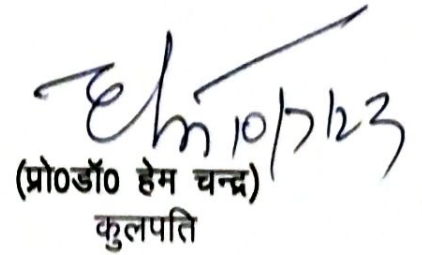 10/7/23
(प्रो0डॉ0 हेम चन्द्र)
कुलपति